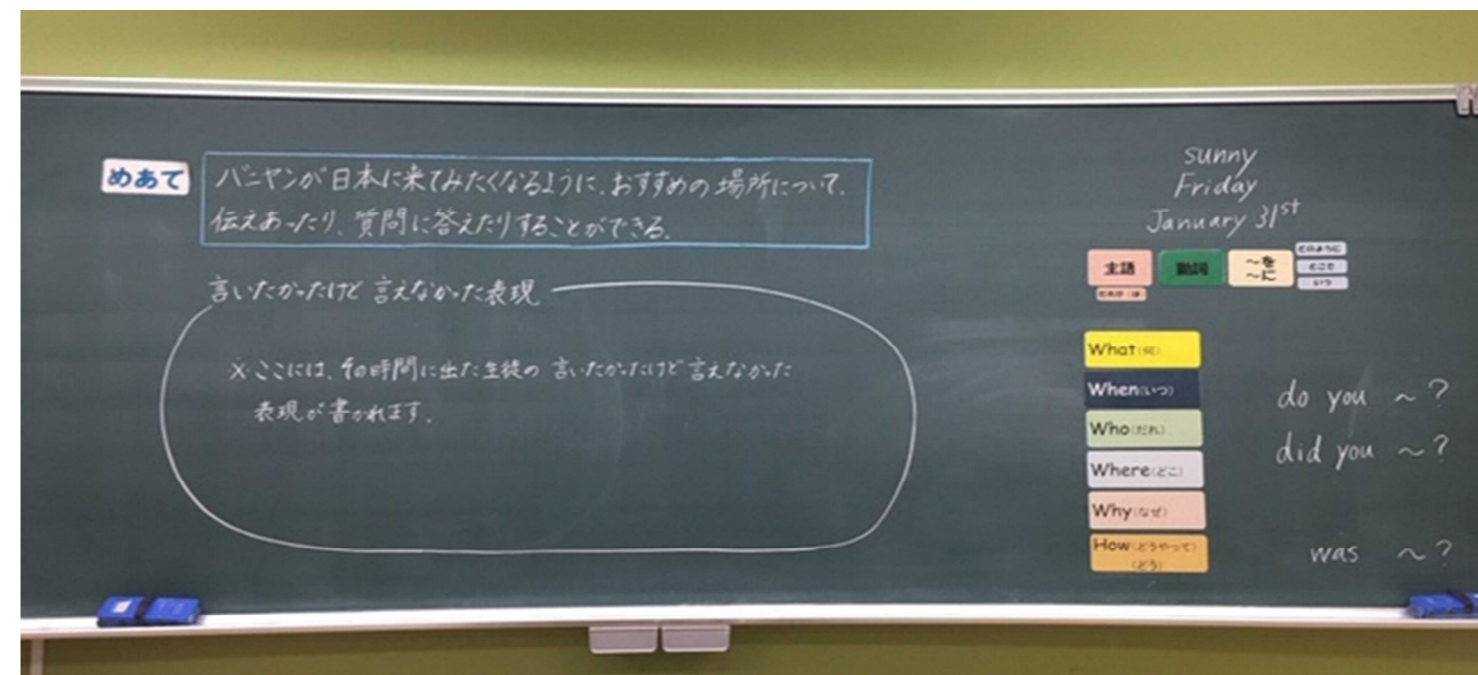 めあて
バニヤンが日本に来てみたくなるように、おすすめの場所について、
伝えあったり、質問に答えたりすることができる。
言いたかったけど言えなかった表現
※ここには、その時間に出た生徒の言いたかったけど言えなかった
表現が書かれます。
sunny
Friday
January 31st
主語 動詞 〜を 〜に
どのように
どこで
いつ
What(何)
When(いつ)
Who(だれ)
Where(どこ)
Why(なぜ)
How(どうやって)
(どう)
do you ~?
did you ~?
was ~?